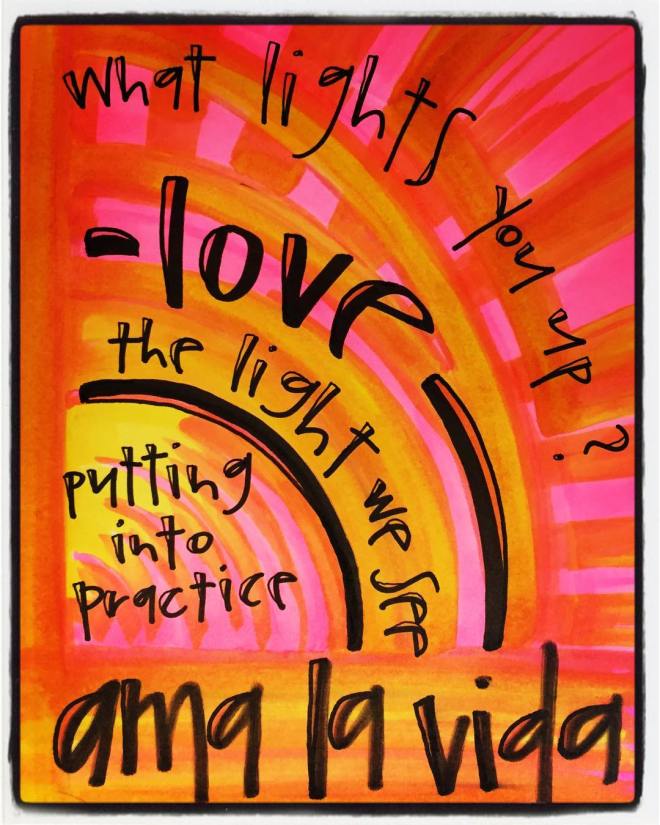 what lights you up?
-love
the light we see
putting
into
practice
ama la vida